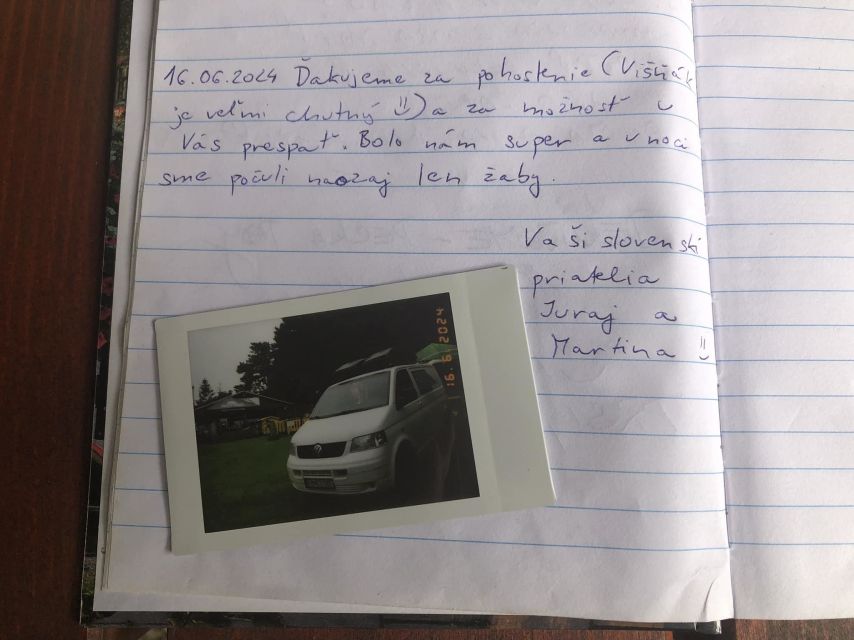 16.06.2024 Ďakujeme za pohostenie (Višňák
je veľmi chutný :)) a za možnosť u
Vás prespať. Bolo nám super a v noci
sme počuli naozaj len žaby.
Vaši slovenskí
priatelia
Juraj a
Martina :)
16.6.2024